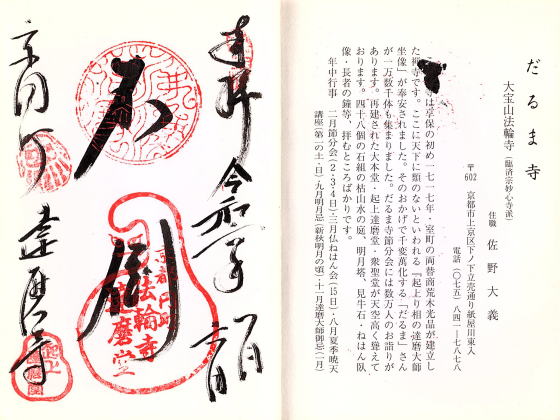 だるま寺
大宝山法輪寺(臨済宗妙心寺派)
住職 佐野大義
〒602 京都市上京区下ノ下立売通り紙屋川東入
電話(〇七五)八四一-七八七八
寺は享保の初め一七一七年・室町の両替商荒木光品が建立し
た禅寺です。ここに天下に類のないといわれる『起上り相の達磨大師
坐像』が奉安されました。そのおかげで千変万化する「だるま」さん
が一万数千体も集まりました。だるま寺節分会には数万人のお詣りが
あります。再建された大本堂・起上達磨堂・衆聖堂が天空高く聳えて
おります。四十八個の石組の枯山水の庭、明月塔、見牛石・ねはん臥
像・長者の鐘等、拝むところばかりです。
年中行事 二月節分会(2・3・4日)・三月仏ねはん会(15日)・八月夏季暁天
講座(第一の土・日)・九月明月忌(新秋明月の頃)・十一月達磨大師御忌(一月)
奉拝 令和
不
京都
法輪寺
達磨堂
達磨寺